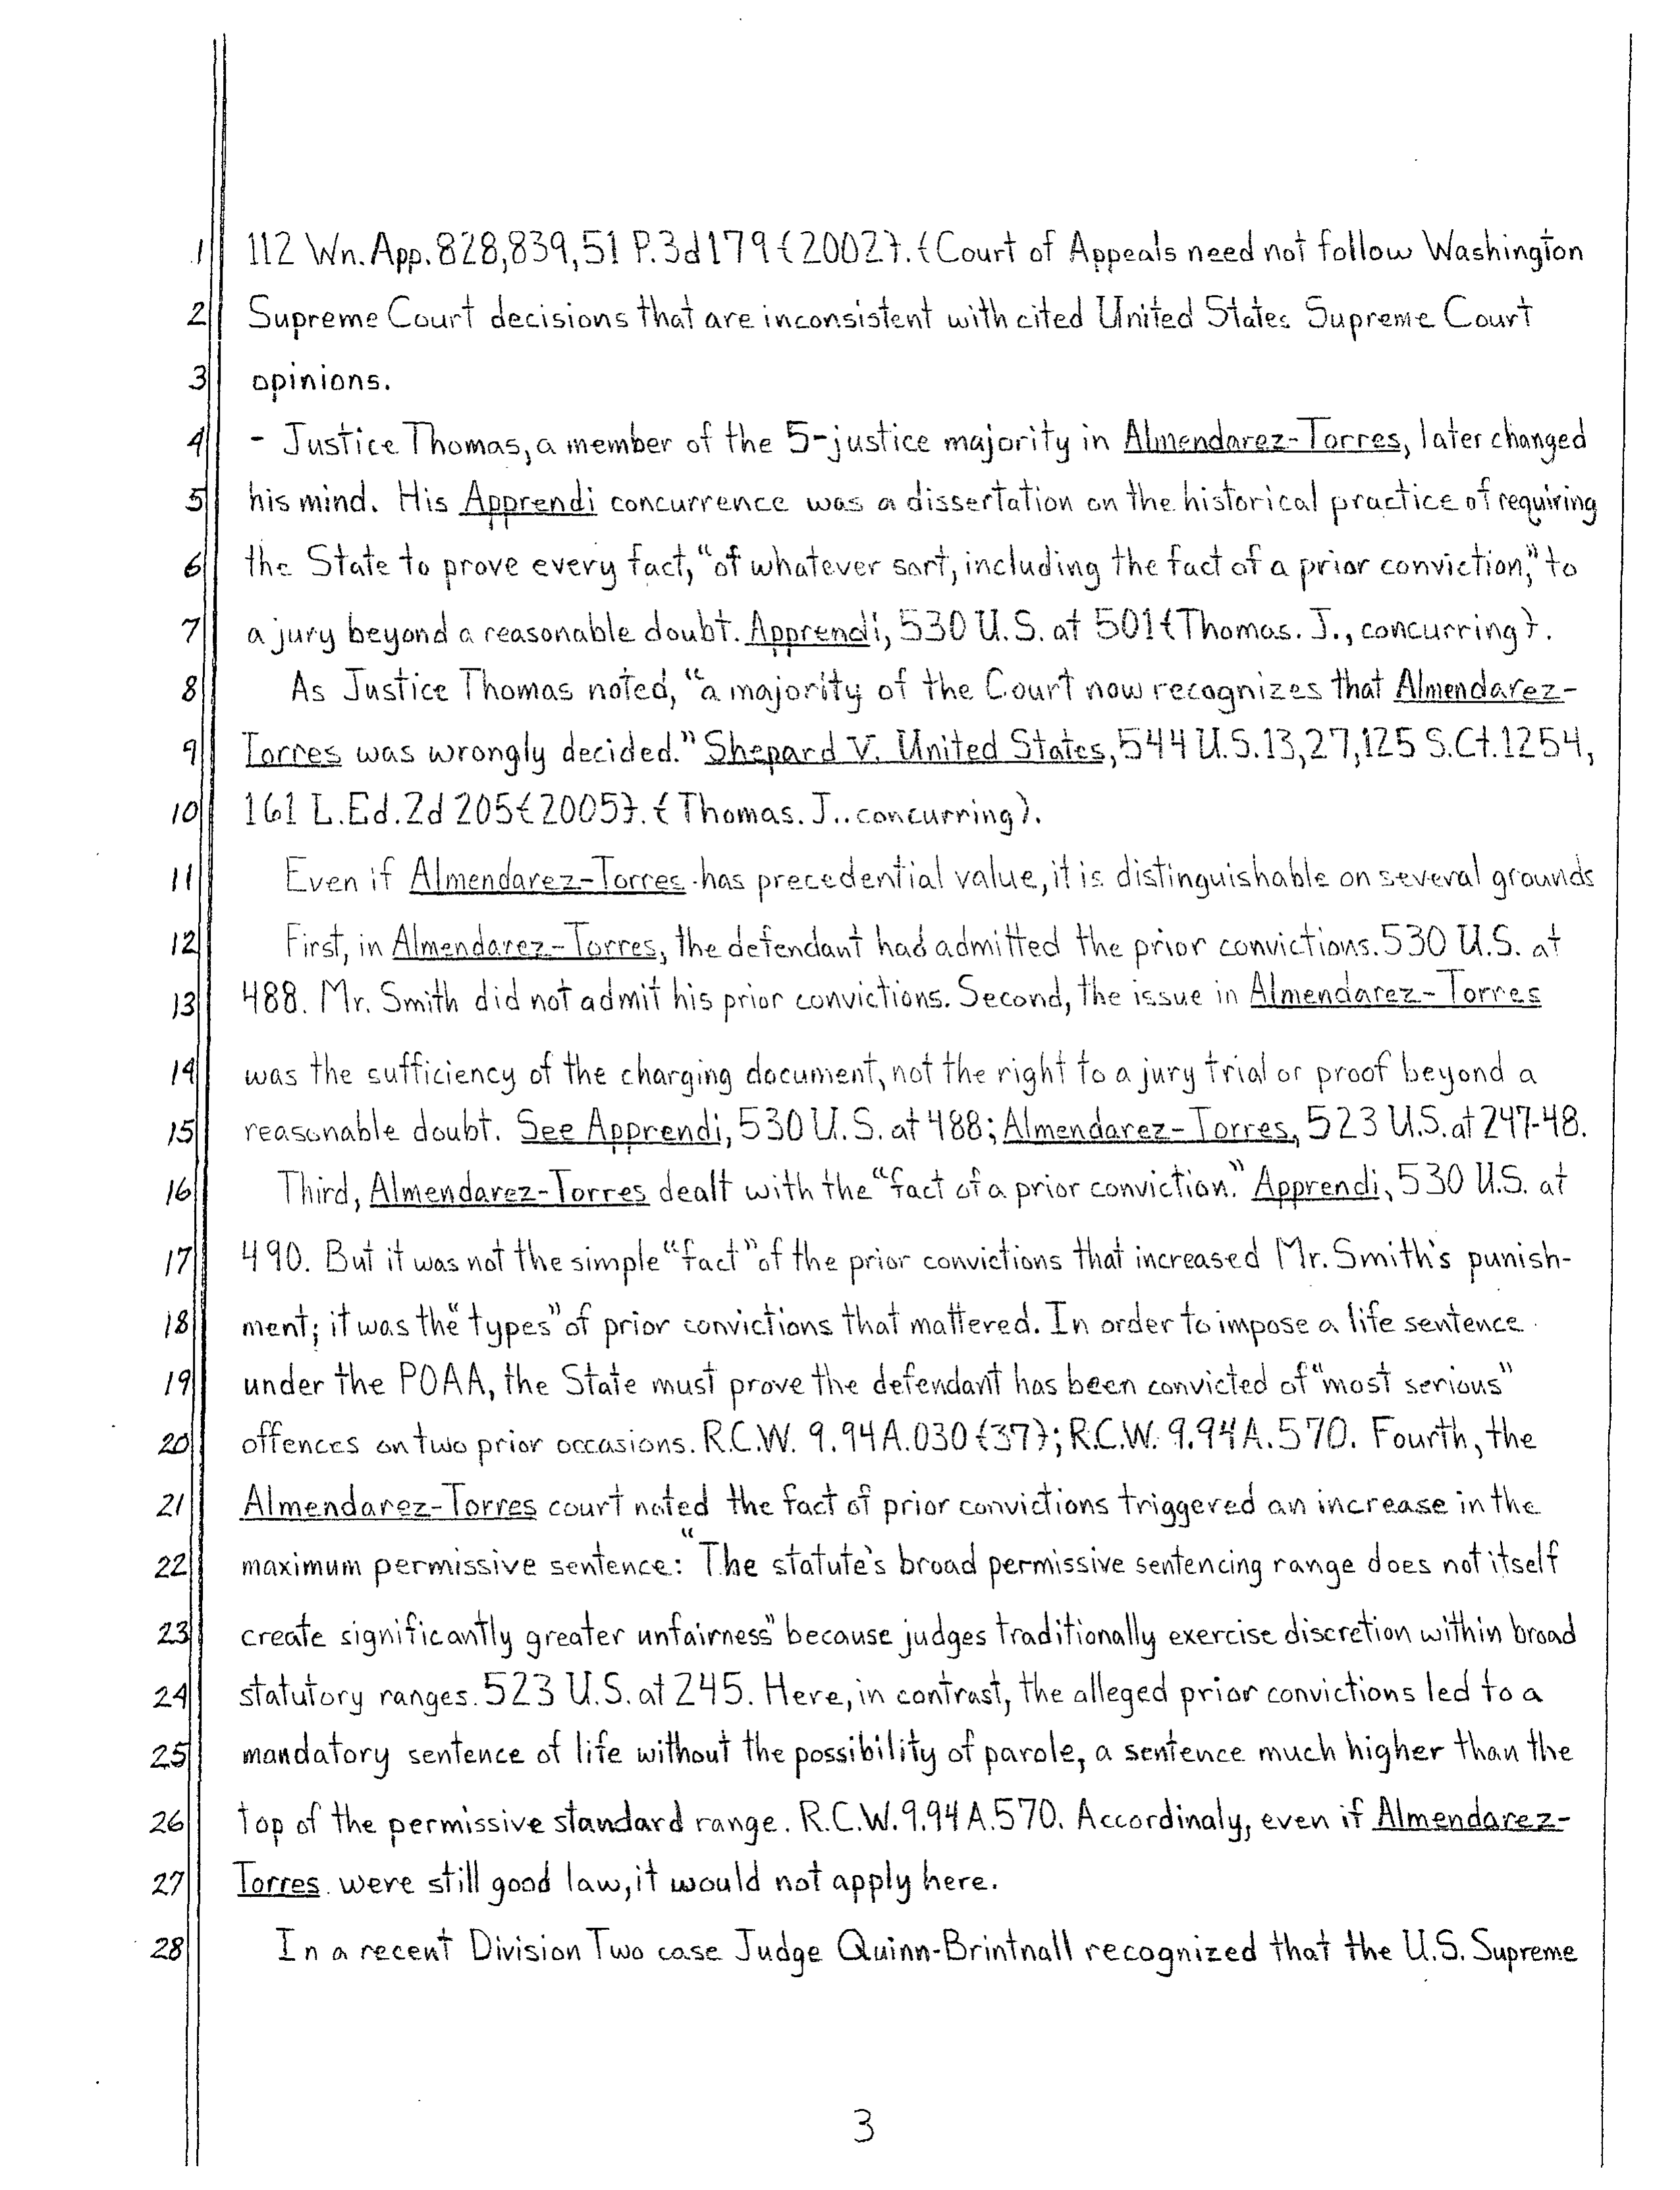 1 112 Wn. App. 828, 839, 51 P.3d 179 {2002}. {Court of Appeals need not follow Washington
2 Supreme Court decisions that are inconsistent with cited United States Supreme Court
3 opinions.
4 - Justice Thomas, a member of the 5-justice majority in Almendarez-Torres, later changed
5 his mind. His Apprendi concurrence was a dissertation on the historical practice of requiring
6 the State to prove every fact, "of whatever sort, including the fact of a prior conviction," to
7 a jury beyond a reasonable doubt. Apprendi, 530 U.S. at 501 {Thomas. J., concurring}.
8 As Justice Thomas noted, "a majority of the Court now recognizes that Almendarez-
9 Torres was wrongly decided." Shepard V. United States, 544 U.S. 13, 27, 125 S.Ct. 1254,
10 161 L.Ed.2d 205 {2005}. {Thomas. J.. concurring}.
11 Even if Almendarez-Torres has precedential value, it is distinguishable on several grounds
12 First, in Almendarez-Torres, the defendant had admitted the prior convictions. 530 U.S. at
13 488. Mr. Smith did not admit his prior convictions. Second, the issue in Almendarez-Torres
14 was the sufficiency of the charging document, not the right to a jury trial or proof beyond a
15 reasonable doubt. See Apprendi, 530 U.S. at 488; Almendarez-Torres, 523 U.S. at 247-48.
16 Third, Almendarez-Torres dealt with the "fact of a prior conviction." Apprendi, 530 U.S. at
17 490. But it was not the simple "fact" of the prior convictions that increased Mr. Smith's punish-
18 ment; it was the "types" of prior convictions that mattered. In order to impose a life sentence
19 under the POAA, the State must prove the defendant has been convicted of "most serious"
20 offences on two prior occasions. R.C.W. 9.94A.030 {37}; R.C.W. 9.94A.570. Fourth, the
21 Almendarez-Torres court noted the fact of prior convictions triggered an increase in the
22 maximum permissive sentence: "The statute's broad permissive sentencing range does not itself
23 create significantly greater unfairness" because judges traditionally exercise discretion within broad
24 statutory ranges. 523 U.S. at 245. Here, in contrast, the alleged prior convictions led to a
25 mandatory sentence of life without the possibility of parole, a sentence much higher than the
26 top of the permissive standard range. R.C.W. 9.94A.570. Accordinaly, even if Almendarez-
27 Torres were still good law, it would not apply here.
28 In a recent Division Two case Judge Quinn-Brintnall recognized that the U.S. Supreme
3